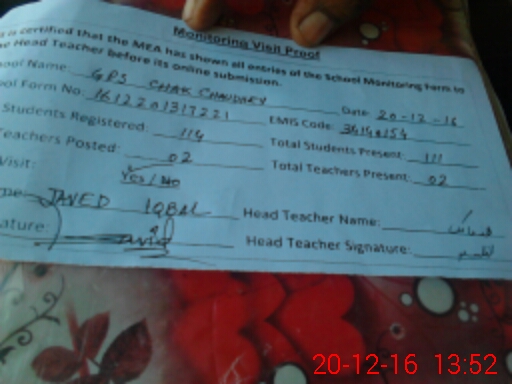 Monitoring Visit Proof
is certified that the MEA has shown all entries of the School Monitoring Form to
Head Teacher before its online submission.
ool Name GPS CHAK CHAUDARY Date: 20-12-16
ool Form No: 1612201317221 EMIS Code:
Students Registered: 114 Total Students Present: 111
eachers Posted: 02 Total Teachers Present: 02
Visit: Yes / No
JAVED IQBAL Head Teacher Name:
ature: Javid Head Teacher Signature:
20-12-16 13:52